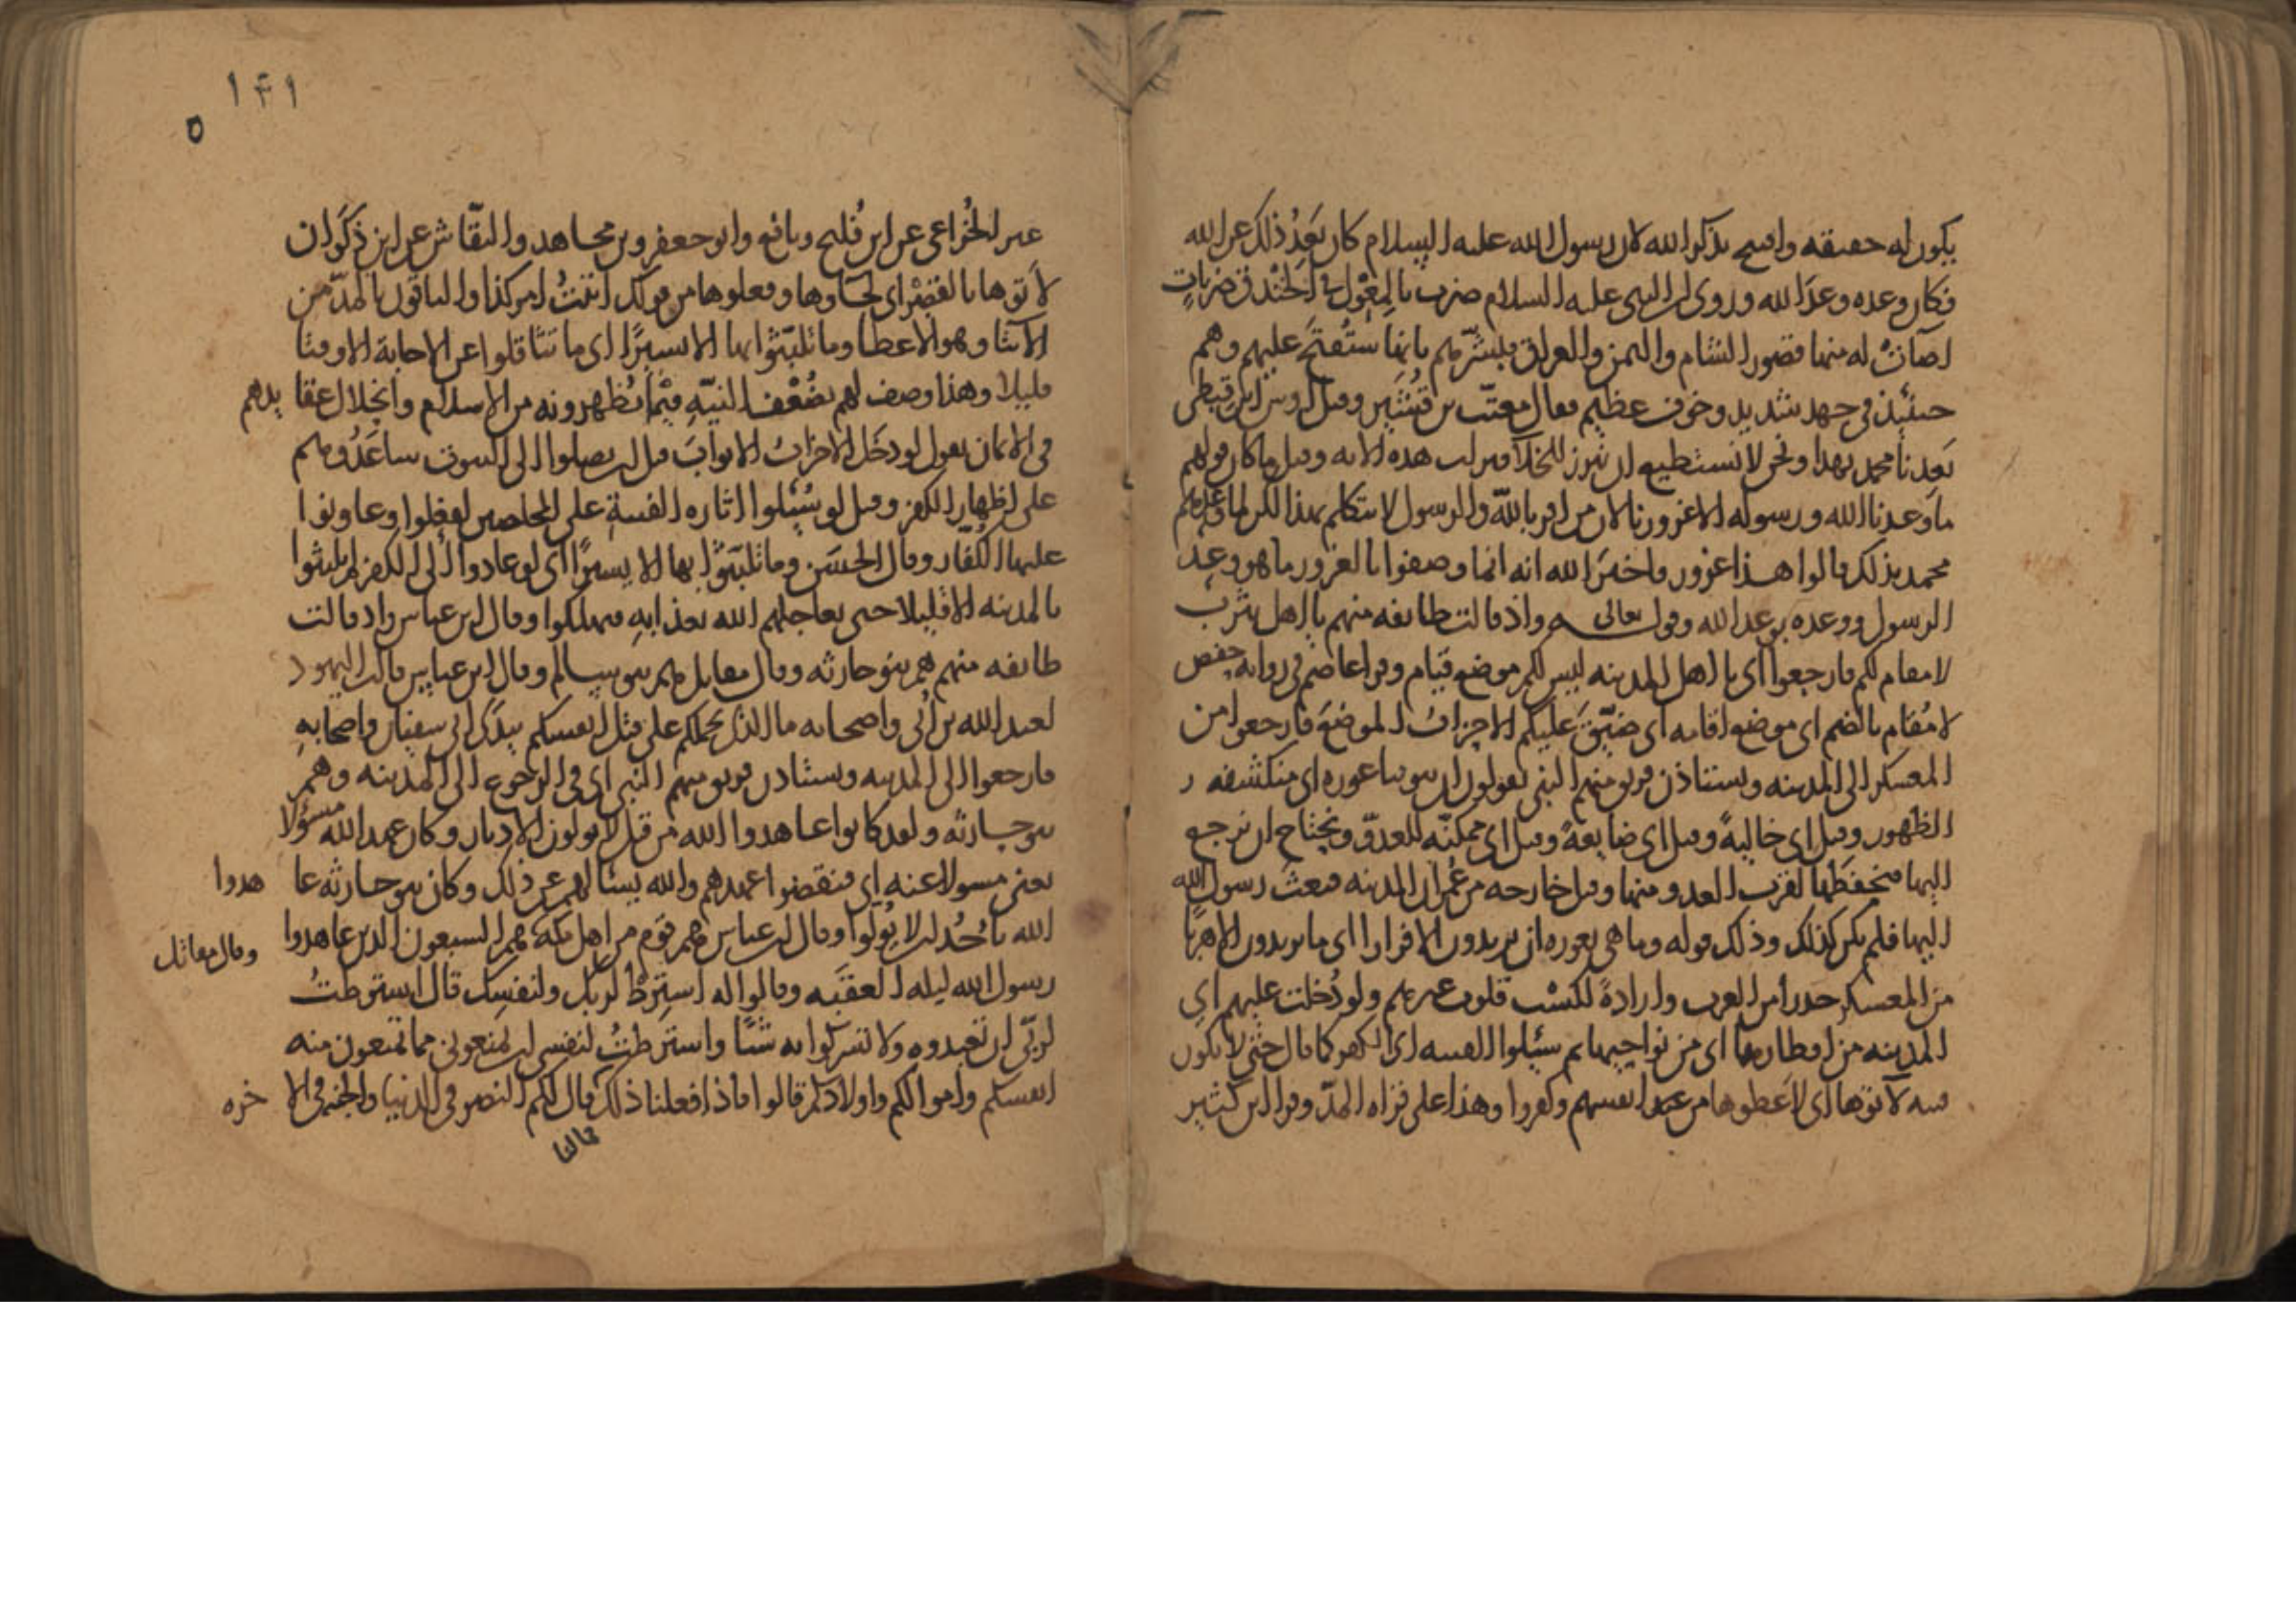 يكون له حقيقه وافتتح بذكر الله لان رسول الله عليه السلام كان يعد ذلك عن الله
فكان وعده وعد الله وروى ان النبى عليه السلام ضرب بالمعول فى الخندق ضربات
اضاءت له منها قصور الشام واليمن والعراق فبشرهم بانها ستفتح عليهم وهم
حينئذ فى جهد شديد وخوف عظيم فقال معتب بن قشير وقيل اوس بن قيظى
يعدنا محمد بهذا ونحن لا نستطيع ان نبرز للخلا فنزلت هذه الايه وقيل ما كان قولهم
ما وعدنا الله ورسوله الا غرورا لان من اقر بالله والرسول لا يتكلم بهذا لكن لما وعدهم
محمد بذلك قالوا هذا غرور فاخبر الله انه انما وصفوا بالغرور ما هو وعد
الرسول ووعده بوعد الله وقوله تعالى واذ قالت طائفه منهم يا اهل يثرب
لا مقام لكم فارجعوا اى يا اهل المدينه ليس لكم موضع قيام وقرا عاصم فى روايه حفص
لا مُقام بالضم اى موضع اقامه اى ضيّق عليكم الاحزاب الموضع فارجعوا من
المعسكر الى المدينه ويستاذن فريق منهم النبى يقولون ان بيوتنا عوره اى منكشفه
الظهور وقيل اى خالية وقيل اى ضايعة وقيل اى ممكنه للعدو ونحتاج ان نرجع
اليها فنحفظها لقرب العدو منها وقيل خارجه من عمران المدينه فبعث رسول الله
اليها فلم يكن كذلك وذلك قوله وما هى بعوره ان يريدون الا فرارا اى ما يريدون الا هربا
من المعسكر حذرا من العرب وارادة لكسر قلوب غيرهم ولو دُخلت عليهم اى
المدينه من اقطارها اى من نواحيها ثم سئلوا الفتنه اى الكفر كما قال حتى لا يكون
فتنه لآتوها اى لاعطوها من عند انفسهم وكفروا وهذا على قراه المدّ وقرا ابن كثير
١٤١
٥
غير الخُزاعى عن ابن فُليح ونافع وابو جعفر وبن مجاهد والنقّاش عن ابن ذكوان
لأتوها بالقصر اى لجاؤها وفعلوها من قولك اتيتُ امر كذا والباقون بالمدّ من
الآيتا وهو الاعطا وما تلبّثوا بها الا يسيرًا اى ما تثاقلوا عن الاجابة الا وقتا
قليلا وهذا وصف لهم بضُعف النيّه فيما يُظهرونه من الاسلام وانحلال عقايدهم
فى الايمان يقول لو دخَل الاحزاب الابوابَ قبل ان يصلوا الى البيوت ساعَدُوهم
على اظهار الكفر وقيل لو سُئلوا اثاره الفتنة على المخلصين لفعلوا وعاونوا
عليها الكُفّار وقال الحسَن وما تلبّثوا بها الا يسيرًا اى لو عادوا الى الكفر لم يلبثوا
بالمدينه الا قليلا حتى يعاجلهم الله بعذابه فيهلكوا وقال ابن عباس واذ قالت
طائفه منهم هم بنو حارثه وقال مقاتل هم بنو سالم وقال ابن عباس قالت اليهود
لعبد الله بن اُبى واصحابه ما الذى يحملكم على قتل انفسكم بيدَى ابى سفيان واصحابه
فارجعوا الى المدينه ويستاذن فريق منهم النبى اى فى الرجوع الى المدينه وهم
بنو حارثه ولقد كانوا عاهدوا الله من قبل لا يولون الادبار وكان عهد الله مسؤلا
يعنى مسولا عنه اى فنقضوا عهدهم والله يسئالهم عن ذلك وكان بنو حارثه عاهدوا
الله باُحُد ان لا يُولّوا وقال ابن عباس هم قوم من اهل مكه وقال مقاتل هم السبعون الذين عاهدوا
رسول الله ليله العقبَه وقالوا له اسْترِط لربك ولنفسِك قال اسْترطتُ
لربّى ان تعبدوه ولا تشركوا به شيئا واسترطتُ لنفسى ان تمنعونى مما تمنعون منه
انفسكم واموالكم واولادكم قالوا فاذا فعلنا ذلك فما لنا قال لكم النصر فى الدنيا والجنه فى الاخره